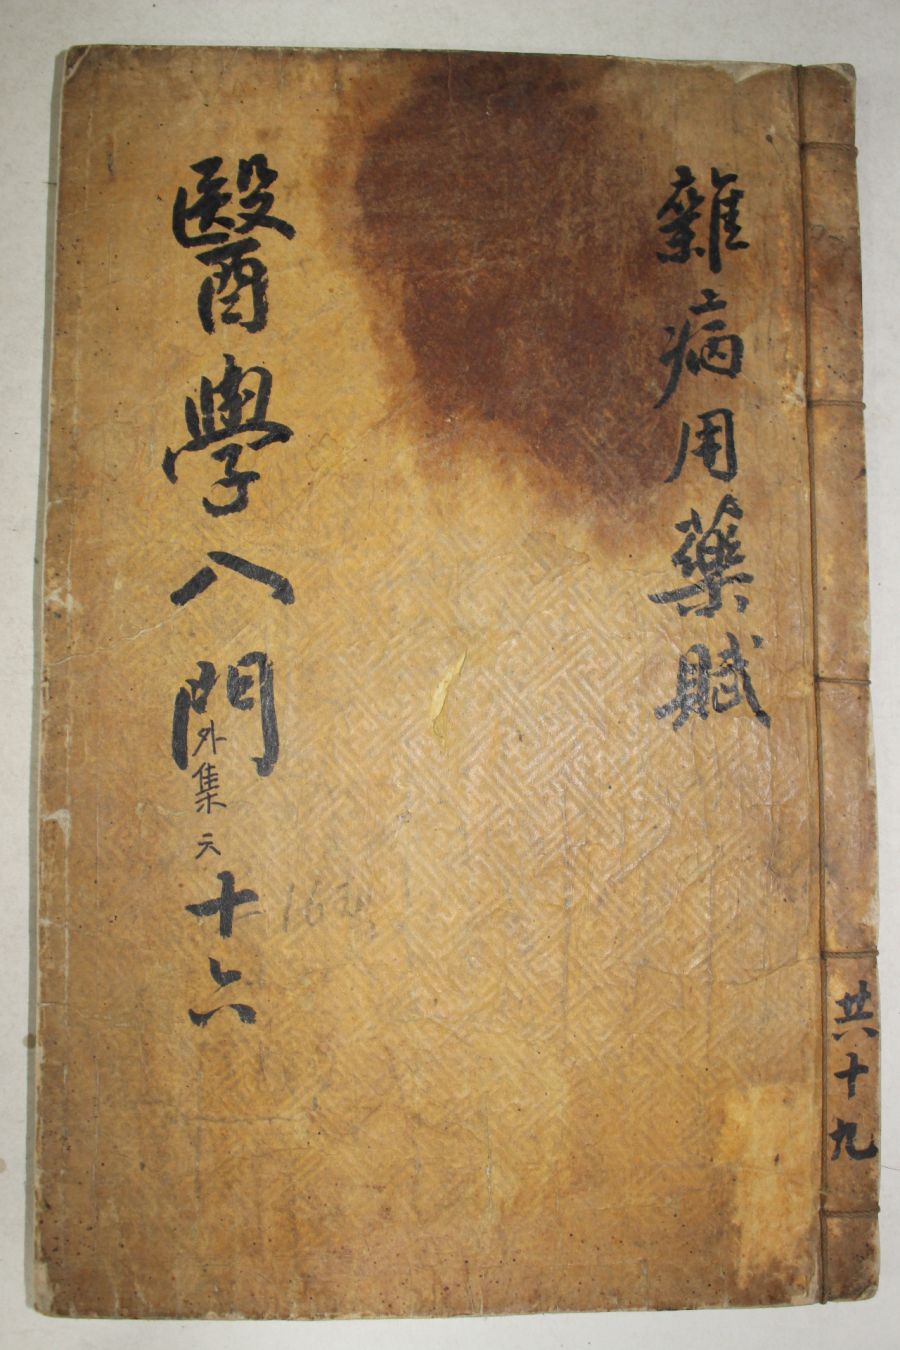 雜病用藥賦
醫學入門
外集
十六
共十九